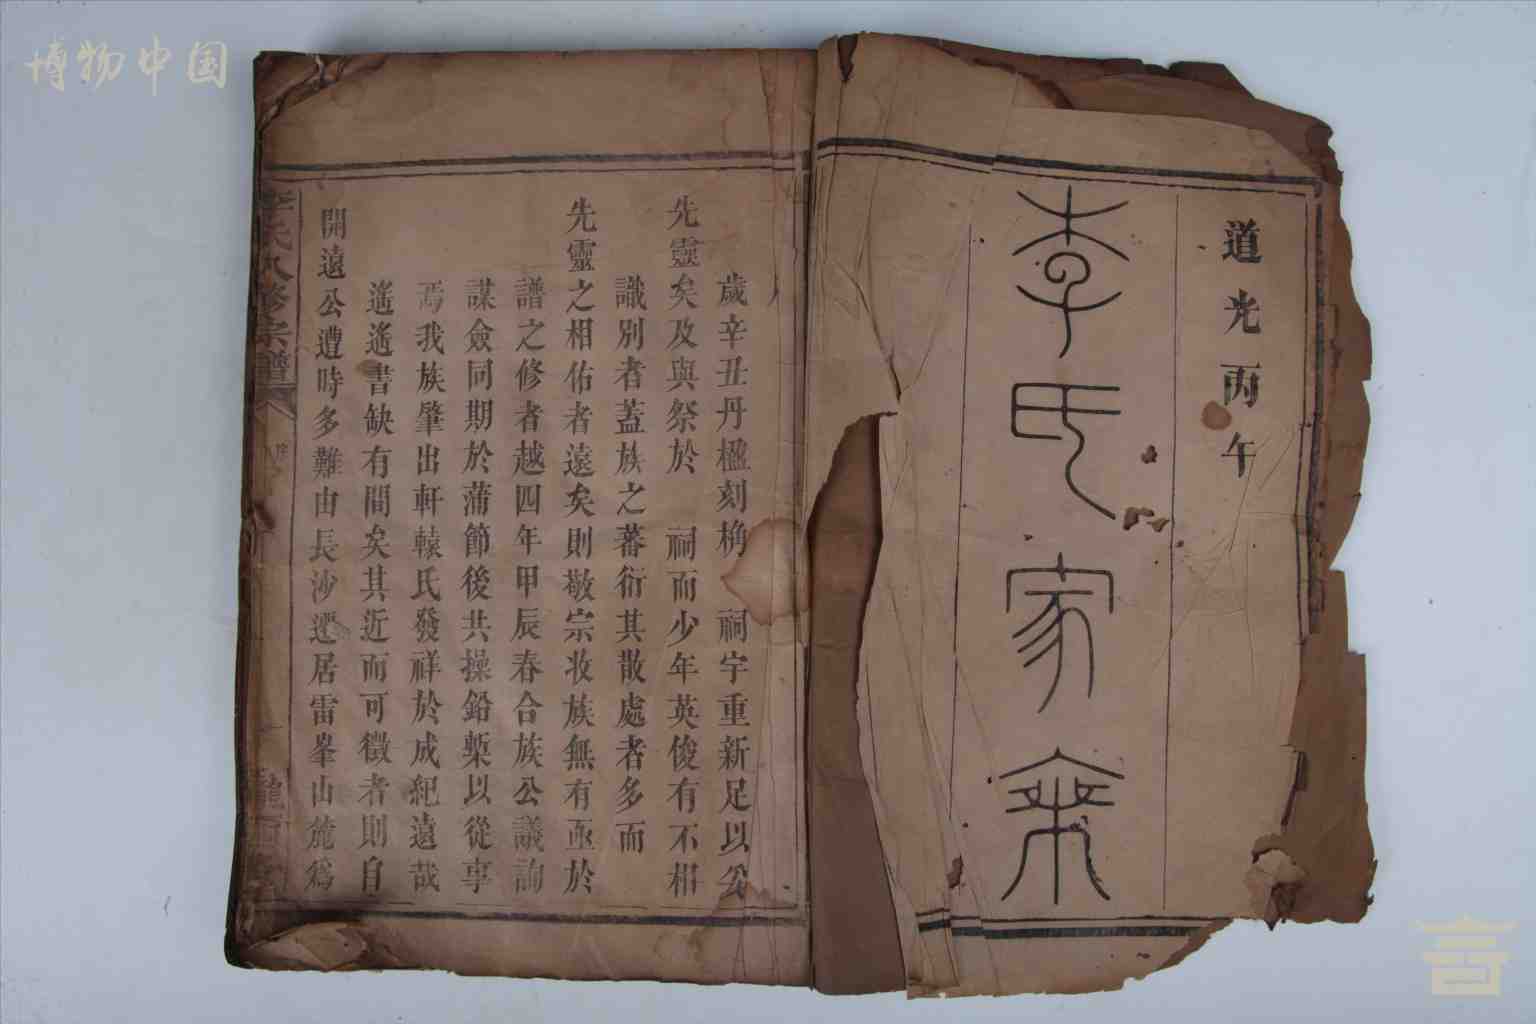 博物中国
道光丙午
李氏家乘
歲辛丑丹楹刻桷 祠宇重新足以公
先靈矣及與祭於 祠而少年英俊有不相
識別者蓋族之蕃衍其散處者多而
先靈之相佑者遠矣則敬宗收族無有亟於
譜之修者越四年甲辰春合族公議詢
謀僉同期於蒲節後共操鉛槧以從事
焉我族肇出軒轅氏發祥於成紀遠哉
遙遙書缺有間矣其近而可徵者則自
開遠公遭時多難由長沙遷居雷峯山麓爲
李氏八修宗譜
隴西